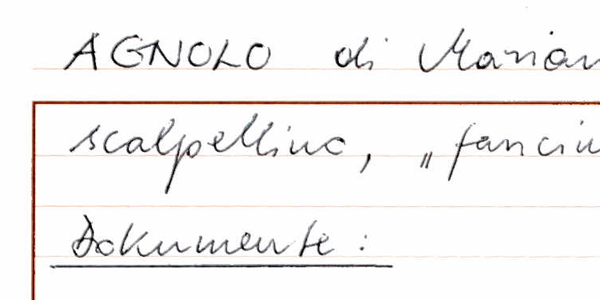 AGNOLO di Marian
scalpellino, „fanciu
Dokumente: